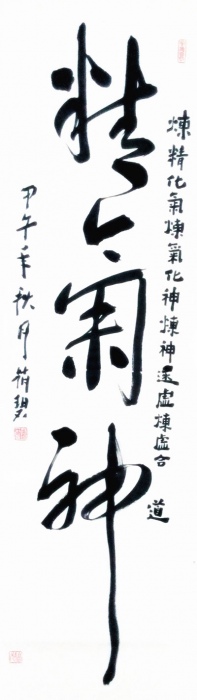 精氣神
煉精化氣煉氣化神煉神還虛煉虛合道
甲午年秋月荷碧